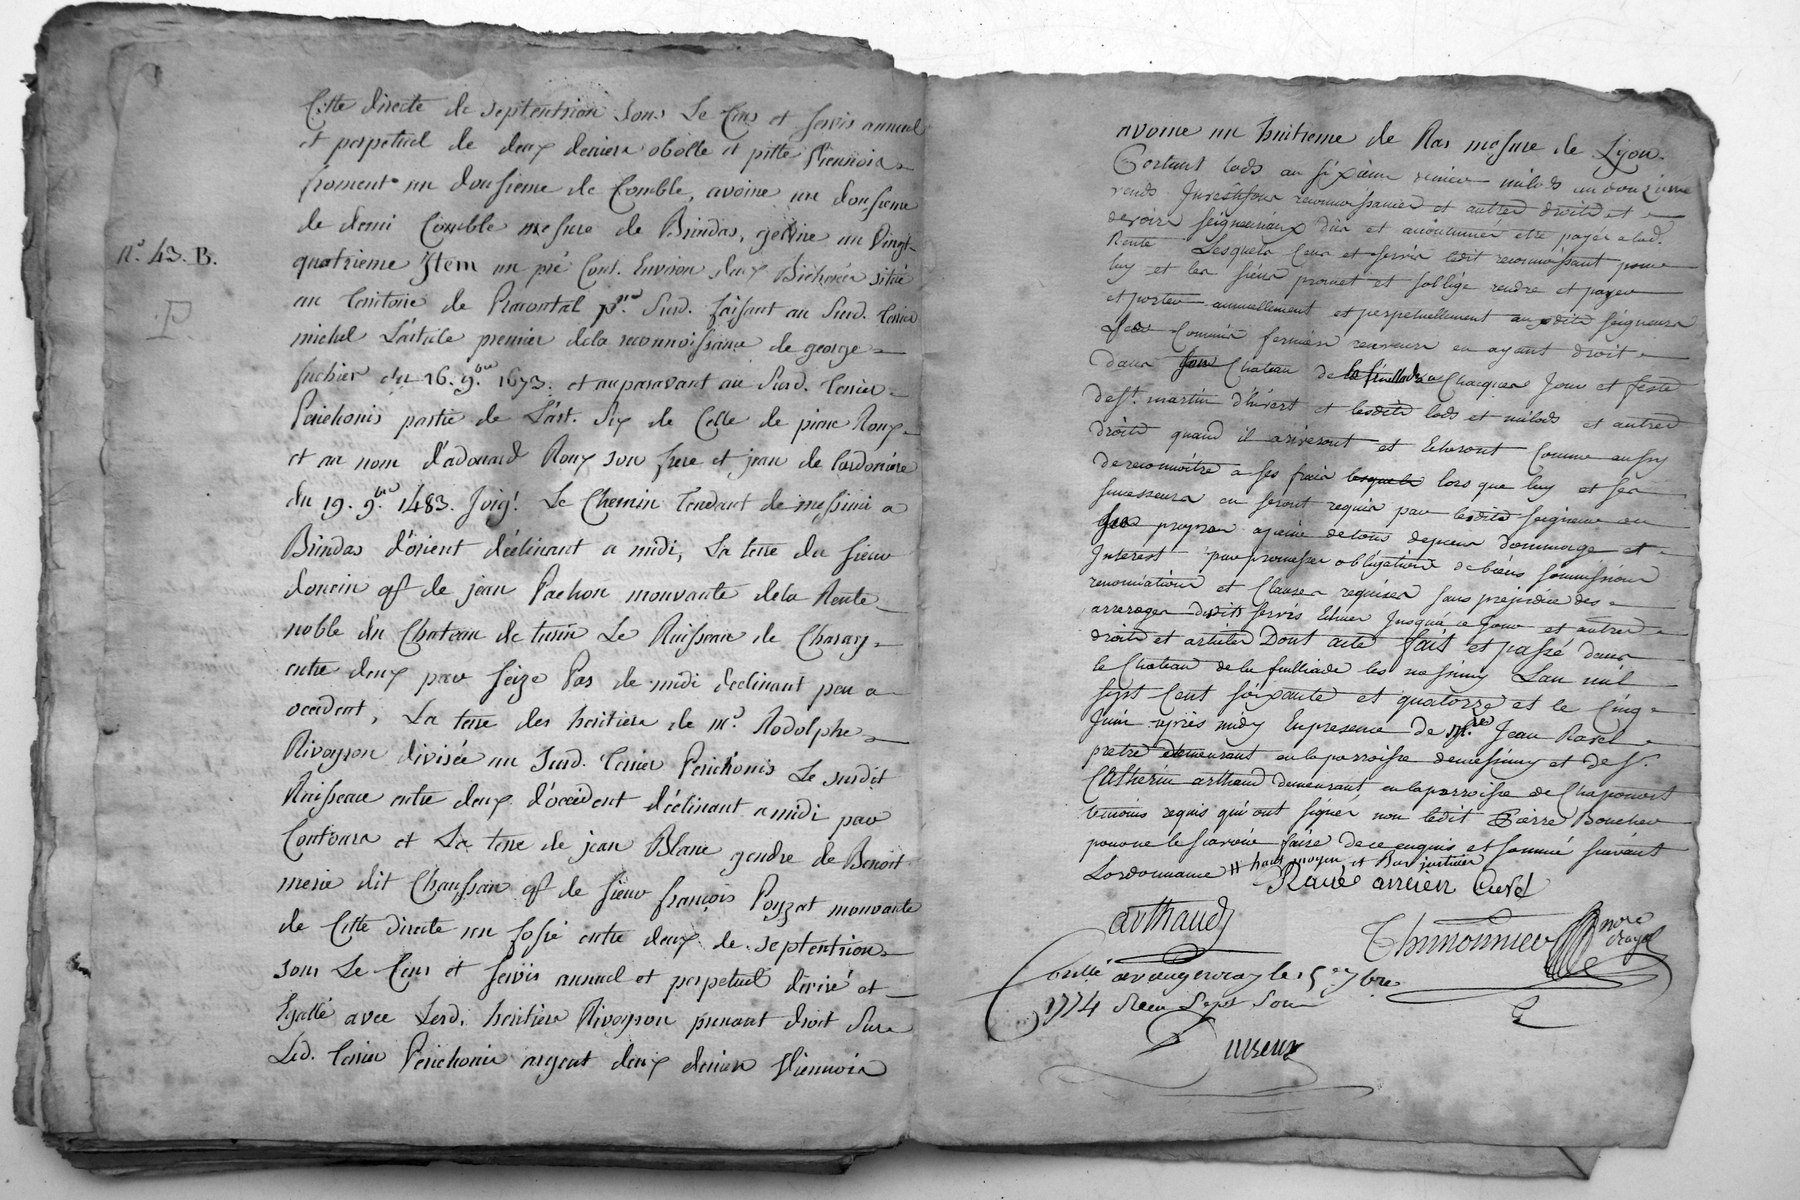 Cette directe de septentrion sous Le Cens et servis annuel
et perpetuel de deux deniers obolle et pitte Viennois
froment un dousieme de Comble, avoine un dousieme
de demi Comble mesure de Brindas, geline un Vingt
n.o 43. B.
quatrieme Item un pré Cont. Environ deux Bicherées situé
au Territoire de Pravontal Susd. faisant au Susd. Terrier
P
michel L'article premier de la reconnoissance de george
fuchier du 16. 9.bre 1673. et auparavant au Susd. terrier
Perichonis partie de L'art. Six de Celle de pierre Roux
et au nom d'adouard Roux son frere et jean de
du 19. 9.bre 1483. Joig.t Le Chemin Tendant de messimi a
Brindas d'orient déclinant a midi, La terre du sieur
doncin qf de jean Pachon mouvante de la Rente
noble du Chateau de turin Le Ruisseau de Charay
entre deux par seize Pas de midi declinant peu a
occident, La terre des heritiers de m.r Rodolphe
Rivoyron divisée au Susd. Terrier Perichonis Le susdit
Ruisseau entre deux d'occident déclinant a midi par
Contours et La terre de jean Blanc gendre de Benoit
merie dit Chaussan qf de sieur françois Poyzat mouvante
de Cette directe un fossé entre deux de septentrion
sous Le Cens et servis annuel et perpetuel divisé et
Egallé avec Lesd. heritiers Rivoyron prenant droit Sur
Led. terrier Perichonis argent deux deniers Viennois
avoine un huitieme de Ras mesure de Lyon.
Portant lods au sixieme denier milods au douzieme
vends Investison reconnoissances et autres droits et
devoirs seigneuriaux dûs et accoutumés etre payés a lad.
Rente Lesquels Cens et servis ledit reconnoissant pour
luy et les siens promet et s'oblige rendre et payer
et porter annuellement et perpetuellement auxdits seigneurs
Leurs Commis fermiers receveurs ou ayant droit
dans son Chateau de la feuillade a Chacques Jour et feste
de St. martin d'hivert et lesdits lods et milods et autres
droits quand il ariveront et Echeront Comme aussy
de reconnoitre a ses frais lesquels lors que luy et ses
successeurs en seront requis par lesdits seigneurs ou
a peine de tous depens dommage et
Interest par promesses obligations de biens soumissions
renonciations et Clauses requises sans prejudice des
arrerages desdits servis Echus Jusqua ce jour et autres
droits et articles Dont acte fait et passé dans
le Chateau de la feuilliade les messimy Lan mil
sept Cent soixante et quatorze et le Cinq
Juin après midy En presence de m.re Jean Ravel
pretre demeurant en la parroisse de messimy et de Sr.
Catherin arthaud demeurant en la parroisse de Chaponost
temoins requis qui ont signer non ledit Pierre Boucher
pour ne le savoir faire de ce enquis et sommé suivant
Lordonnance # haut moyen et Bas justicier
Ravel ancien Curé
arthaud
Thimonnier nore royal
Conllé a vaugneray le 15e 7bre
1774 Reçu Sept Sous